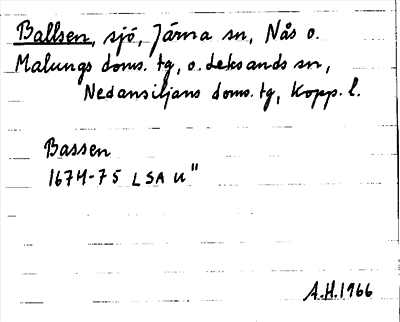 Ballsen, sjö, Järna sn, Nås o.
Malungs doms. tg, o. Leksands sn,
Nedansiljans doms. tg, Kopp. l.
Bassen
1674-75 LSA U"
A.H. 1966